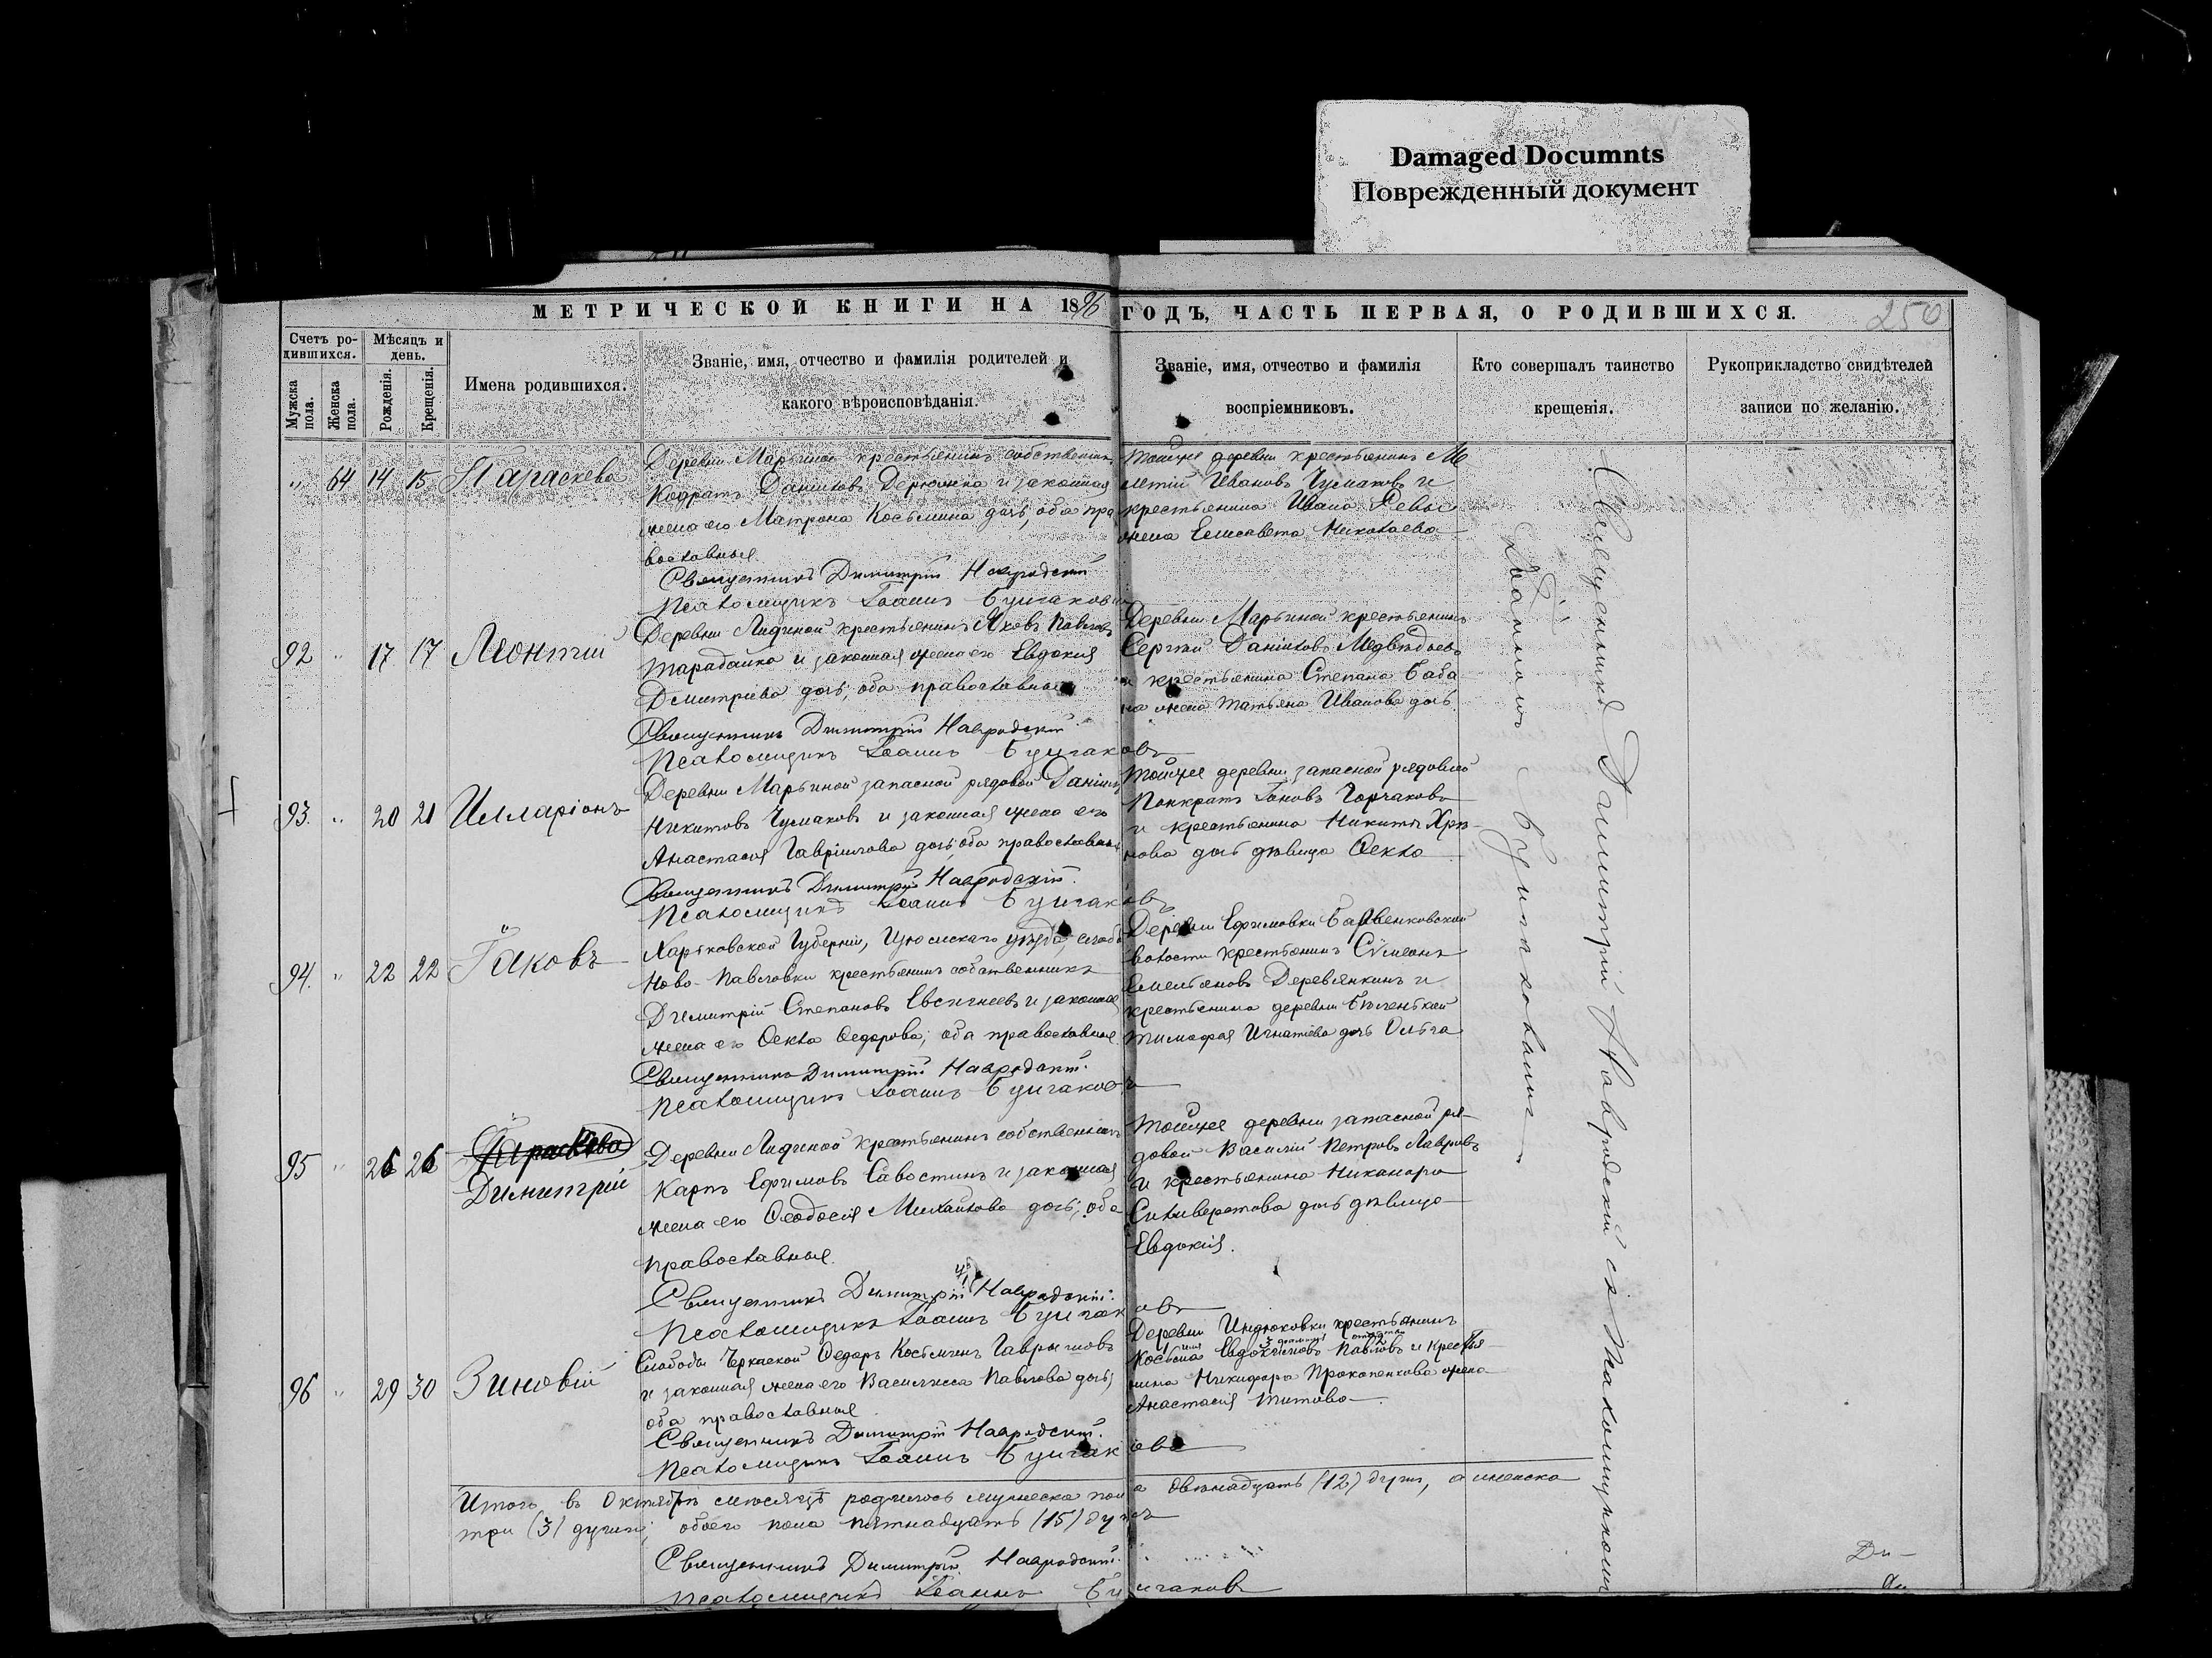 Damaged Documnts
Поврежденный документ
МЕТРИЧЕСКОЙ КНИГИ НА 1896 ГОДЪ, ЧАСТЬ ПЕРВАЯ, О РОДИВШИХСЯ.
250
Счетъ ро-
дившихся.
Мѣсяцъ и
день.
Мужска
пола.
Женска
пола.
Рожденія.
Крещенія.
Имена родившихся.
Званіе, имя, отчество и фамилія родителей и
какого вѣроисповѣданія.
Званіе, имя, отчество и фамилія
воспріемниковъ.
Кто совершалъ таинство
крещенія.
Рукоприкладство свидѣтелей
записи по желанію.
" 64 14 15 Параскева
Деревни Марьиной крестьянинъ собственникъ
Кодратъ Даниловъ Дерюжка и законная
жена его Матрона Косьмина дочь, оба пра
вославные.
Священникъ Димитрій Навродскій
Псаломщикъ Іоаннъ Булгаковъ
Тойже деревни крестьянинъ Ме
летій Ивановъ Чумаковъ и
крестьянина Ивана
жена Елисавета Николаева
92 " 17 17 Леонтій
Деревни Лидиной крестьянинъ Яковъ Павловъ
Тарадайка и законная жена его Евдокія
Димитріева дочь, оба православные
Священникъ Димитрій Навродскій
Псаломщикъ Іоаннъ Булгаковъ
Деревни Марьиной крестьянинъ
Сергѣй Даніиловъ Медвѣдевъ
и крестьянина Степана Баба
на жена Татьяна Иванова дочь.
93. " 20 21 Илларіонъ
Деревни Марьиной запасной рядовой Даніилъ
Никитовъ Чумаковъ и законная жена его
Анастасія Гавріилова дочь, оба православные
Священникъ Димитрій Навродскій.
Псаломщикъ Іоаннъ Булгаковъ
Тойже деревни запасной рядовой
Панкратъ Горчаковъ
и крестьянина Никиты
нова дочь дѣвица Ѳекла
94. " 22 22 Іаковъ
Харьковской Губерніи, Изюмскаго уѣзда, слоб.
Ново-Павловки крестьянинъ собственникъ
Димитрій Степановъ Евсигнеевъ и законная
жена его Ѳекла Ѳедорова, оба православные.
Священникъ Димитрій Навродскій.
Псаломщикъ Іоаннъ Булгаковъ
Деревни Ефимовки Барвенковской
волости крестьянинъ Сѵмеонъ
Емельяновъ Деревянкинъ и
крестьянина деревни
Тимофея Игнатіева дочь Ольга
95 " 26 26 Параскева
Димитрій
Деревни Лидиной крестьянинъ собственникъ
Карпъ Ефимовъ Савостинъ и законная
жена его Ѳеодосія Михайлова дочь, оба
православные.
Священникъ Димитрій Навродскій.
Псаломщикъ Іоаннъ Булгаковъ
Тойже деревни запасной ря-
довой Василій Петровъ Лавровъ
и крестьянина Никанора
Сильверстова дочь дѣвица
Евдокія.
96 " 29 30 Зиновій
Слободы Черкаской Ѳедоръ Косьминъ Гавриловъ
и законная жена его Василисса Павлова дочь,
оба православные
Священникъ Димитрій Навродскій.
Псаломщикъ Іоаннъ Булгаковъ
Деревни Индюковки крестьянинъ
Косьма Евдокимовъ Павловъ и крестья-
нина Никифора Прокопенкова жена
Анастасія Титова.
Священникъ Димитрій Навродскій съ псаломщикомъ
Іоанномъ Булгаковымъ.
Итого въ Октябрѣ мѣсяцѣ родилось мужеска пола двѣнадцать (12) душъ, а женска
три (3) души; обоего пола пятнадцать (15) душъ
Священникъ Димитрій Навродскій.
Псаломщикъ Іоаннъ Булгаковъ
Ди-